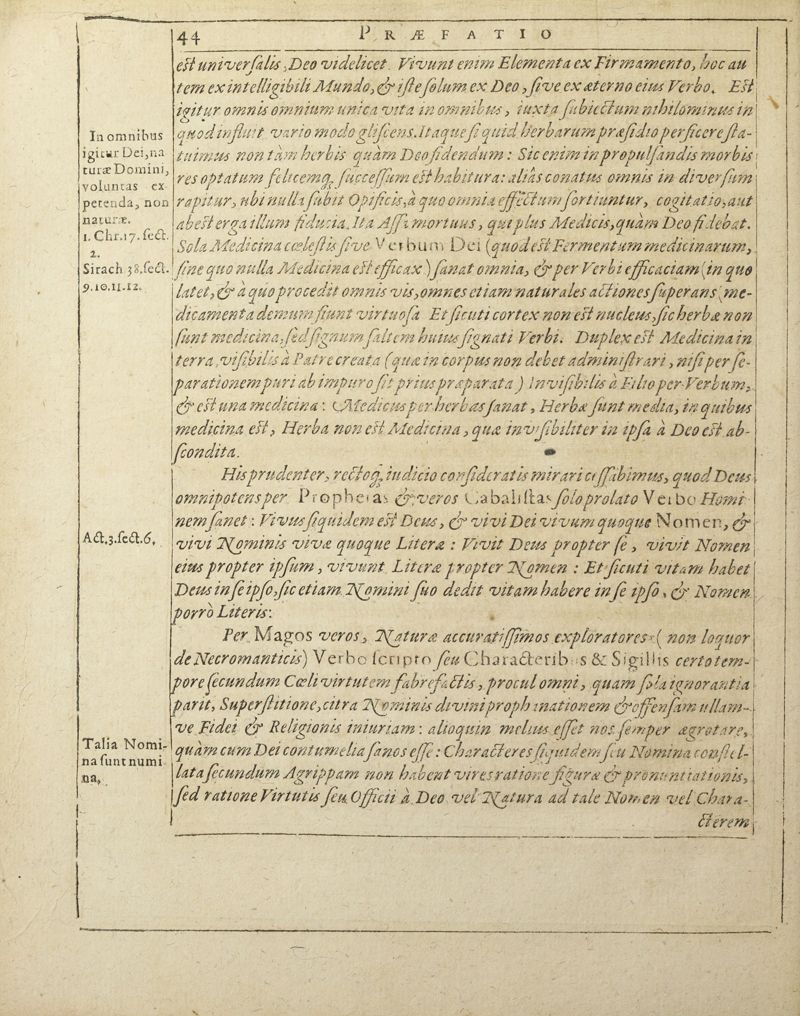 44
PRÆFATIO
est universalis, Deo videlicet. Vivunt enim Elementa ex Firmamento, hoc au
tem ex intelligibili Mundo, & iste solum ex Deo, sive ex æterno eius Verbo. Est
igitur omnis omnium unica vita in omnibus, iuxta subiectum nihilominus in
quod influit vario modo gliscens. Itaque si quid herbarum præsidio perficere sta-
tuimus non tàm herbis quàm Deo fidendum: Sic enim in propulsandis morbis
res optatum felicemq; successum est habitura: aliàs conatus omnis in diversum
rapitur, ubi nulla subit Opificis, à quo omnia effectum sortiuntur, cogitatio, aut
abest erga illum fiducia. Ita Assa mortuus, qui plus Medicis, quàm Deo fidebat.
Sola Medicina cœlestis sive Verbum Dei (quod est Fermentum medicinarum,
sine quo nulla Medicina est efficax) sanat omnia, & per Verbi efficaciam (in quo
latet, & à quo procedit omnis vis, omnes etiam naturales actiones superans) me-
dicamenta demum fiunt virtuosa. Et sicuti cortex non est nucleus, sic herbæ non
sunt medicina, sed signum saltem huius signati Verbi. Duplex est Medicina in
terra, visibilis à Patre creata (quæ in corpus non debet administrari, nisi per se-
parationem puri ab impuro sit prius præparata) Invisibilis à Filio per Verbum,
& est una medicina: Medicus per herbas sanat, Herbæ sunt media, in quibus
medicina est, Herba non est Medicina, quæ invisibiliter in ipsa à Deo est ab-
scondita.
His prudenter, rectoq; iudicio consideratis mirari cessabimus, quod Deus
omnipotens per Prophetas & veros Cabalistas solo prolato Verbo Homi-
nem sanet: Vivus siquidem est Deus, & vivi Dei vivum quoque Nomen, &
vivi Nominis vivæ quoque Literæ: Vivit Deus propter se, vivit Nomen
eius propter ipsum, vivunt Literæ propter Nomen: Et sicuti vitam habet
Deus in se ipso, sic etiam Nomini suo dedit vitam habere in se ipso, & Nomen
porrò Literis:
Per Magos veros, Naturæ accuratissimos exploratores (non loquor
de Necromanticis) Verbo scripto seu Characteribus & Sigillis certo tem-
pore secundum Cœli virtutem fabrefactis, procul omni, quam sola ignorantia
parit, Superstitione, citra Nominis divini prophanationem & offensam ullam-
ve Fidei & Religionis iniuriam: alioquin melius esset nos semper ægrotare,
quàm cum Dei contumelia sanos esse: Characteres siquidem seu Nomina constel-
lata secundum Agrippam non habent vires ratione figuræ & pronuntiationis,
sed ratione Virtutis seu Officii à Deo vel Natura ad tale Nomen vel Chara-
cterem
In omnibus
igitur Dei, na
turæ Domini,
voluntas ex
petenda, non
naturæ.
1. Chr. 17. sect.
2.
Sirach 38. sect.
9.10.11.12.
Act. 3. sect. 6,
Talia Nomi-
na sunt numi
na,